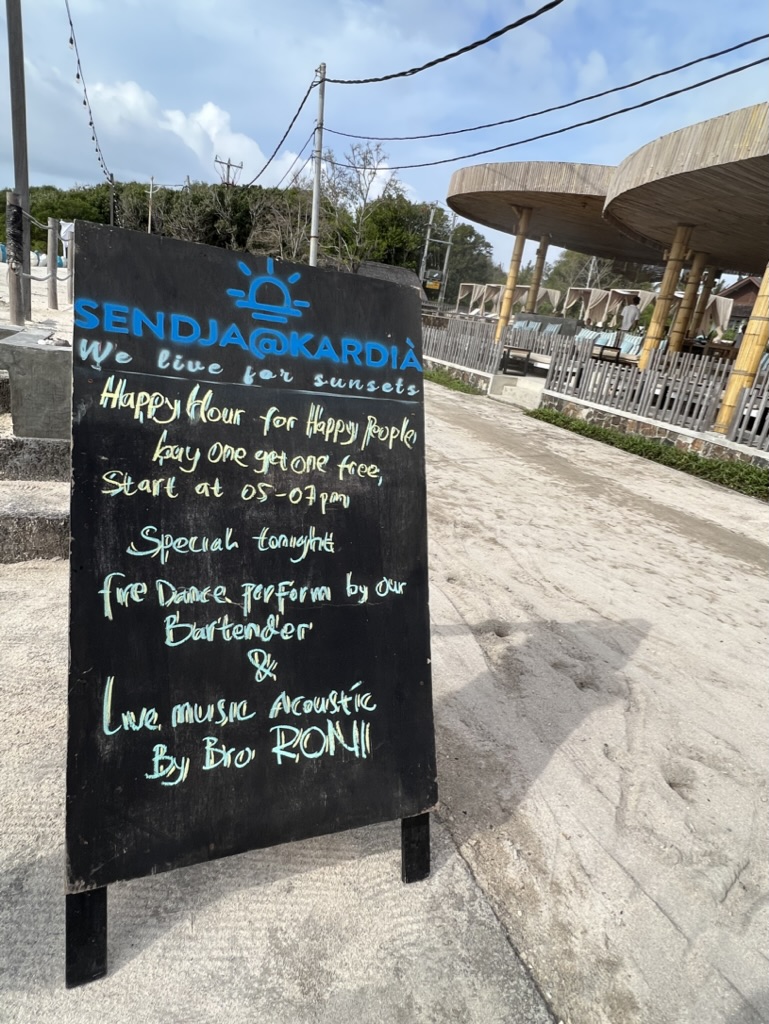 SENDJA@KARDIÀ
We live for sunsets
Happy Hour for Happy People
buy one get one free,
Start at 05-07pm
Special tonight
fire Dance perform by our
Bartender
&
Live music Acoustic
By Bro RONI